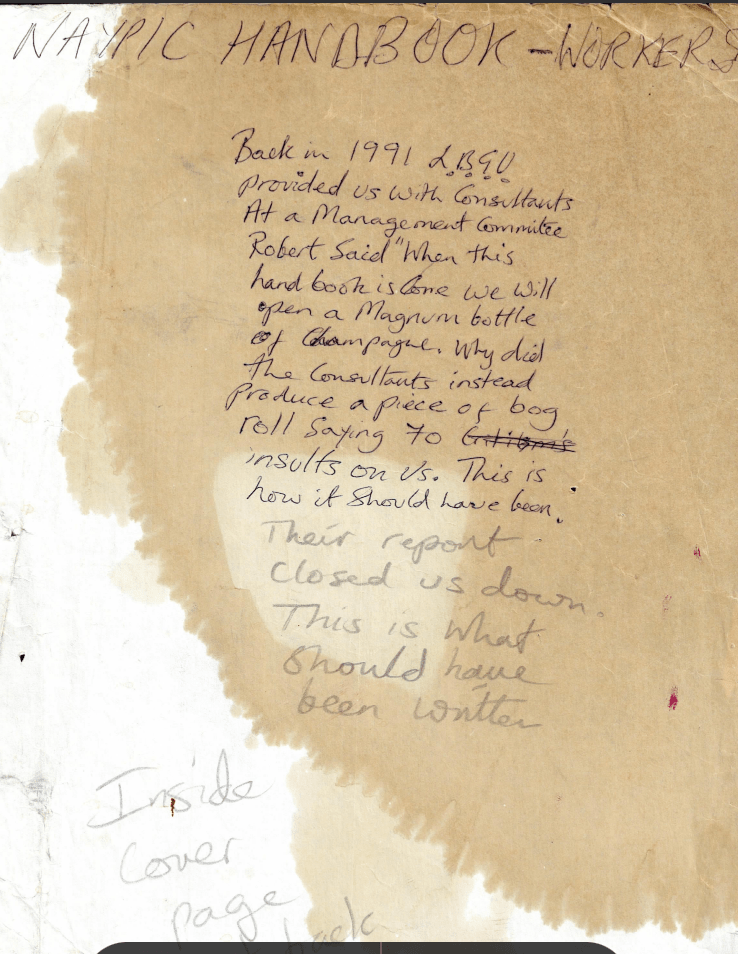 NAYPIC HANDBOOK - WORKERS
Back in 1991 L.B.G.U
provided us with Consultants
At a Management Commitee
Robert Said "When this
hand book is done we will
open a Magnum bottle
of Champagne. Why did
the Consultants instead
produce a piece of bog
roll Saying 70
insults on us. This is
how it Should have been.
Their report
Closed us down.
This is what
Should have
been written
Inside
Cover
page
back